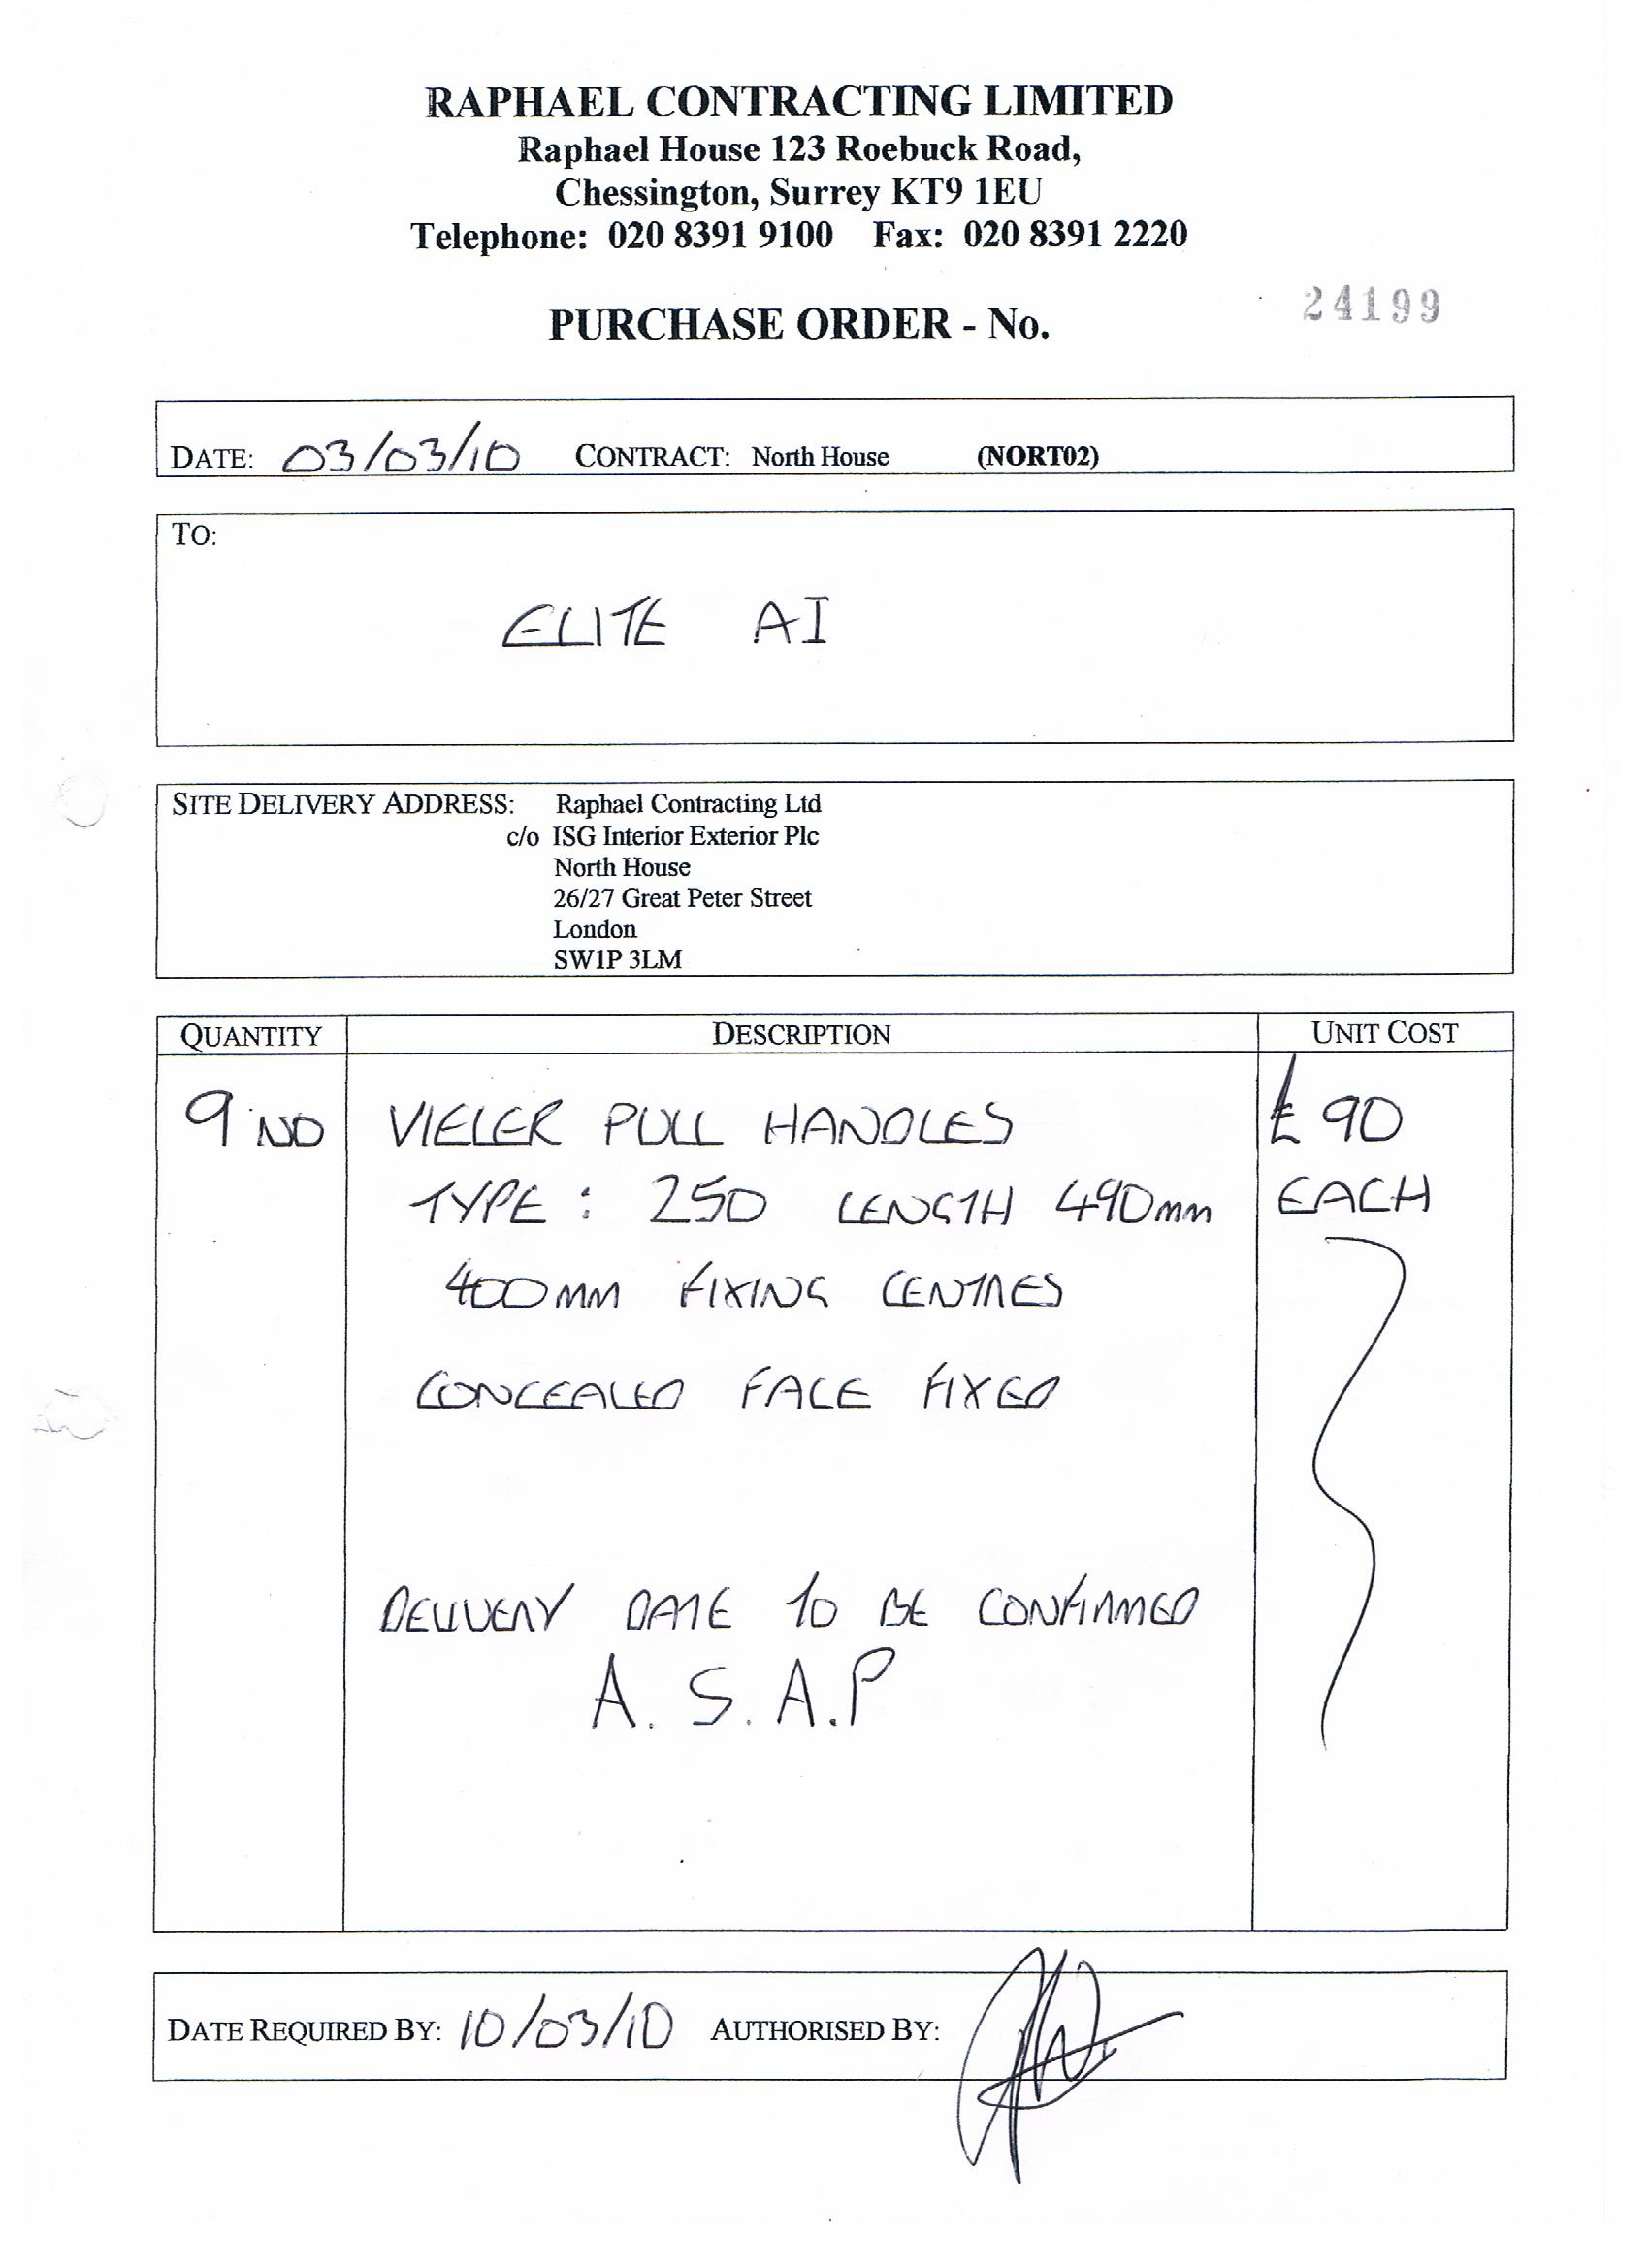 RAPHAEL CONTRACTING LIMITED
Raphael House 123 Roebuck Road,
Chessington, Surrey KT9 1EU
Telephone: 020 8391 9100 Fax: 020 8391 2220
PURCHASE ORDER - No. 24199
DATE: 03/03/10 CONTRACT: North House (NORT02)
TO:
ELITE AI
SITE DELIVERY ADDRESS: Raphael Contracting Ltd
c/o ISG Interior Exterior Plc
North House
26/27 Great Peter Street
London
SW1P 3LM
QUANTITY DESCRIPTION UNIT COST
9 NO VIELER PULL HANDLES £90
TYPE: 250 LENGTH 490mm EACH
400mm FIXING CENTRES
CONCEALED FACE FIXED
DELIVERY DATE TO BE CONFIRMED
A.S.A.P
DATE REQUIRED BY: 10/03/10 AUTHORISED BY: